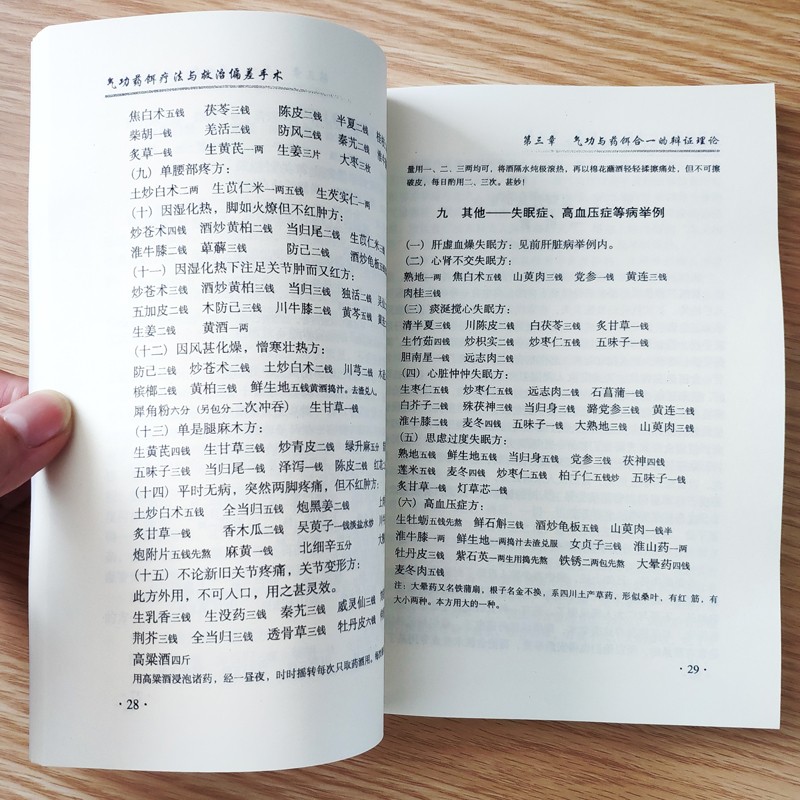 气功药饵疗法与救治偏差手术
焦白术五钱 茯苓三钱 陈皮二钱 半夏二钱
柴胡一钱 羌活二钱 防风二钱 秦艽二钱
炙草一钱 生黄芪一两 生姜三片 大枣三枚
(九)单腰部疼方：
土炒白术二两 生苡仁米一两五钱 生芡实仁一两
(十)因湿化热，脚如火燎但不红肿方：
炒苍术四钱 酒炒黄柏二钱 当归尾二钱 生苡仁米一两
淮牛膝二钱 萆薢三钱 防己二钱 酒炒龟板
(十一)因湿化热下注足关节肿而又红方：
炒苍术三钱 酒炒黄柏三钱 当归三钱 独活二钱
五加皮二钱 木防己三钱 川牛膝二钱 黄芩五钱
生姜二钱 黄酒一两
(十二)因风甚化燥，憎寒壮热方：
防己二钱 炒苍术二钱 土炒白术二钱 川芎二钱
槟榔二钱 黄柏三钱 鲜生地五钱黄酒捣汁。去渣兑入。
犀角粉六分(另包分二次冲吞) 生甘草一钱
(十三)单是腿麻木方：
生黄芪四钱 生甘草三钱 炒青皮二钱 绿升麻五分
五味子三钱 当归尾一钱 泽泻一钱 陈皮二钱
(十四)平时无病，突然两脚疼痛，但不红肿方：
土炒白术五钱 全当归五钱 炮黑姜二钱
炙甘草一钱 香木瓜二钱 吴萸子一钱淡盐水炒
炮附片五钱先煎 麻黄一钱 北细辛五分
(十五)不论新旧关节疼痛，关节变形方：
此方外用，不可入口，用之甚灵效。
生乳香三钱 生没药三钱 秦艽三钱 威灵仙三钱
荆芥三钱 全当归三钱 透骨草三钱 牡丹皮六钱
高粱酒四斤
用高粱酒浸泡诸药，经一昼夜，时时摇转每次只取药酒用。
·28·
第三章 气功与药饵合一的辩证理论
量用一、二、三两均可，将酒隔水炖极滚热，再以棉花蘸酒轻轻揉擦痛处，但不可擦
破皮，每日酌用二、三次。甚妙！
九 其他——失眠症、高血压症等病举例
(一)肝虚血燥失眠方：见前肝脏病举例内。
(二)心肾不交失眠方：
熟地一两 焦白术五钱 山萸肉三钱 党参一钱 黄连三钱
肉桂三钱
(三)痰涎搅心失眠方：
清半夏三钱 川陈皮二钱 白茯苓三钱 炙甘草一钱
生竹茹四钱 炒枳实二钱 炒枣仁五钱 五味子一钱
胆南星一钱 远志肉二钱
(四)心脏忡忡失眠方：
生枣仁五钱 炒枣仁五钱 远志肉二钱 石菖蒲一钱
白芥子二钱 殊茯神三钱 当归身三钱 潞党参三钱 黄连二钱
淮牛膝二钱 麦冬四钱 五味子一钱 大熟地三钱 山萸肉三钱
(五)思虑过度失眠方：
熟地五钱 鲜生地五钱 当归身五钱 党参三钱 茯神四钱
莲米五钱 麦冬四钱 炒枣仁五钱 柏子仁五钱炒 五味子一钱
炙甘草一钱 灯草芯一钱
(六)高血压症方：
生牡蛎五钱先煎 鲜石斛三钱 酒炒龟板五钱 山萸肉一钱半
淮牛膝一两 鲜生地一两捣汁去渣兑服 女贞子三钱 淮山药一两
牡丹皮三钱 紫石英一两生用捣先煎 铁锈二两包先煎 大晕药四钱
麦冬肉五钱
注：大晕药又名铁蒲扇，根子名金不换，系四川土产草药，形似桑叶，有红 筋，有
大小两种。本方用大的一种。
·29·